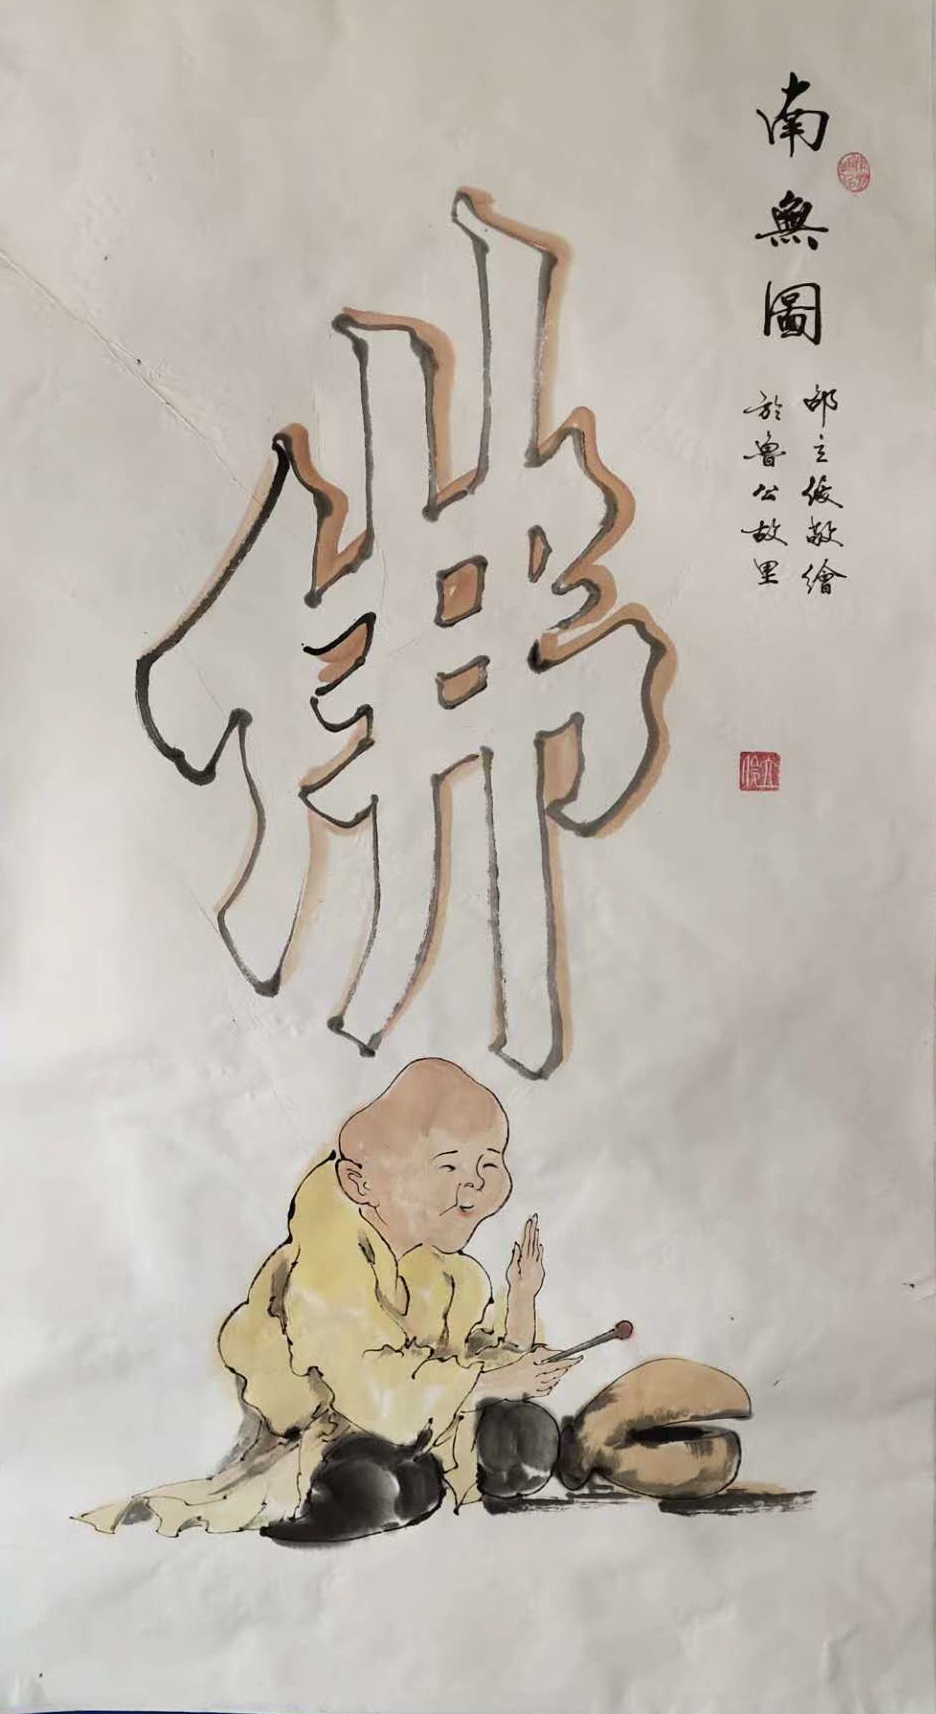 南無圖
邵立俊敬繪
於魯公故里
佛